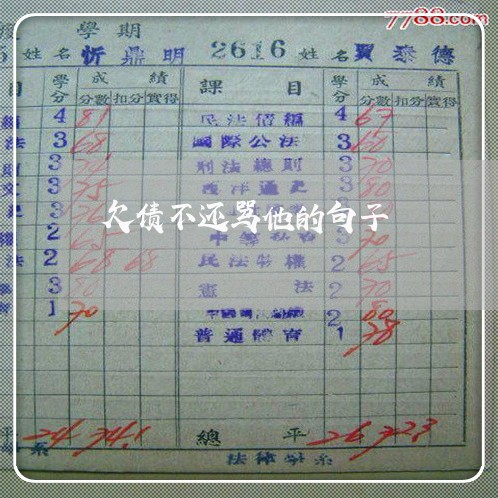 7788.com
學期
姓名 忻鼎明 2616 姓名 賈泰德
目 學分 成績 課目 學分 成績
分數 扣分 實得 分數 扣分 實得
4 81 民法債編 4 67
法 3 68 國際公法 3 60
3 刑法總則 3 70
3 75 西洋通史 3 80
欠债不还骂他的句子
2 65 3 70
法 2 68 68 民法物權 2 65
3 80 憲法 2 70
1 70 2 80
普通體育 1 78
平 24 74.1 總平 26 72.3
系 法律學系